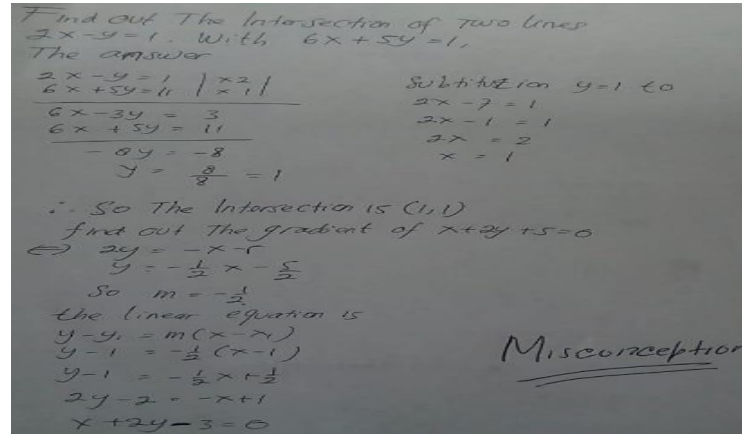 Find out The Intersection of Two lines
2x - y = 1. With 6x + 5y = 1,
The answer
2x - y = 1 | x2 |
6x + 5y = 11 | x1 |
6x - 3y = 3
6x + 5y = 11
- 8y = -8
y = 8/8 = 1
Subtitution y = 1 to
2x - y = 1
2x - 1 = 1
2x = 2
x = 1
∴ So The Intersection is (1,1)
find out The gradient of x + 2y + 5 = 0
⇔ 2y = -x - 5
y = -1/2 x - 5/2
So m = -1/2
the linear equation is
y - y₁ = m(x - x₁)
y - 1 = -1/2 (x - 1)
y - 1 = -1/2 x + 1/2
2y - 2 = -x + 1
x + 2y - 3 = 0
Misconception